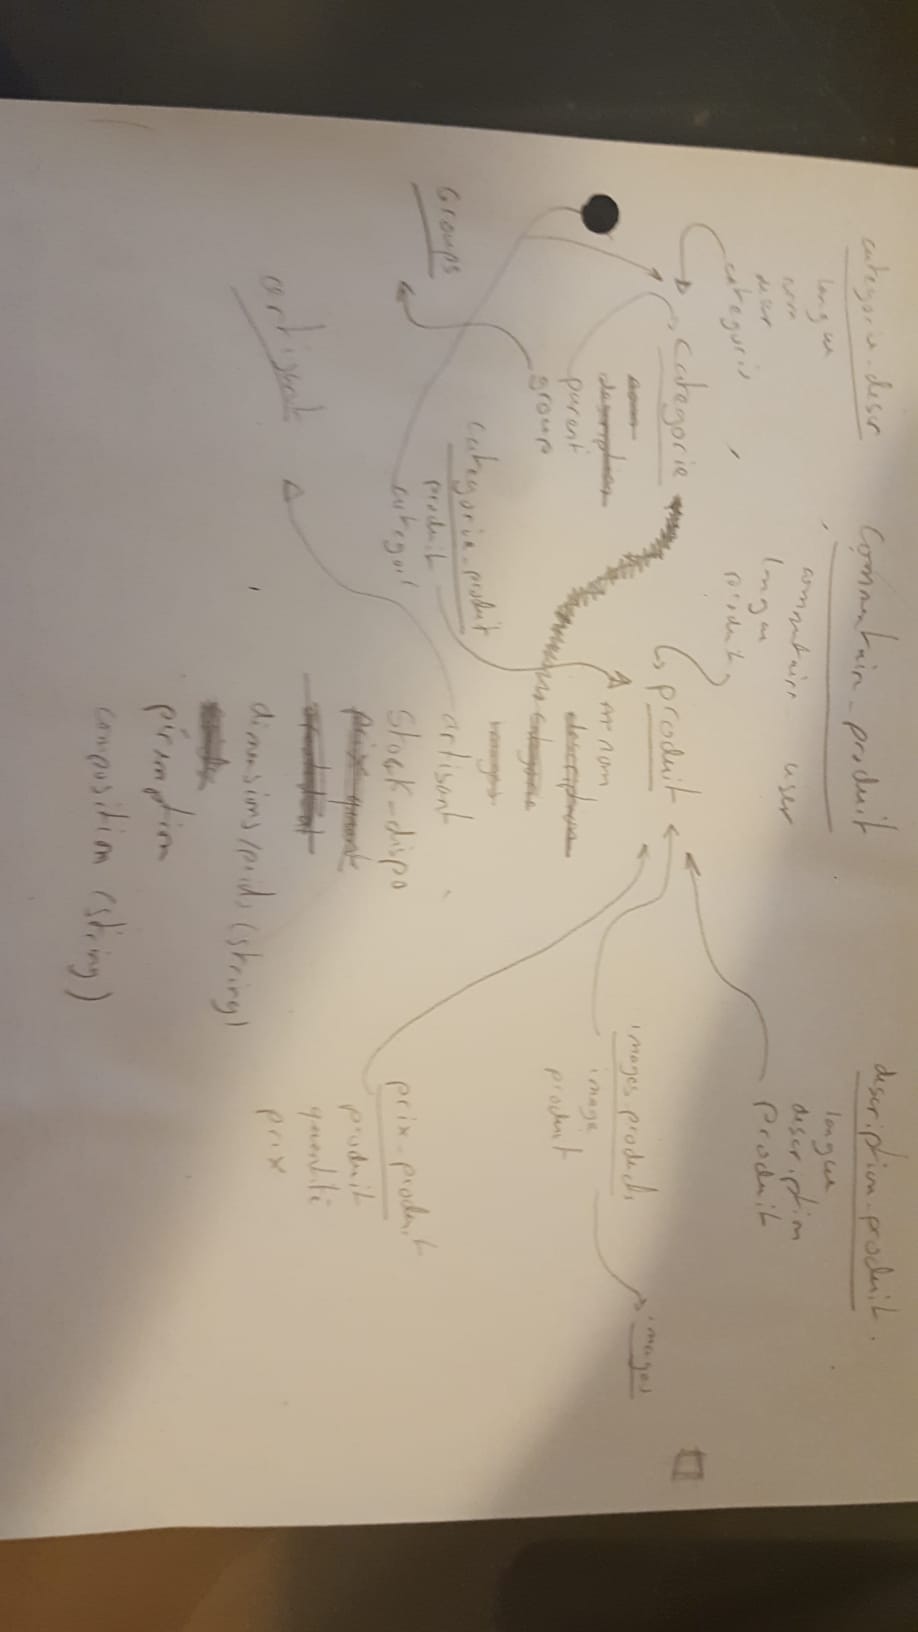 categorie_descr
langue
nom
descr
categorie
commentaire_produit
commentaire user
langue
produit
description_produit.
langue
description
produit
categorie
nom
description
parent
group
produit
nom
description
categorie
images
artisant
stock_dispo
prix quant
dimensions/poids (string)
poids
péremption
composition (string)
images_products
image
produit
images
Groups
categorie_produit
produit
categori
artisant
prix_produit
produit
quantité
prix